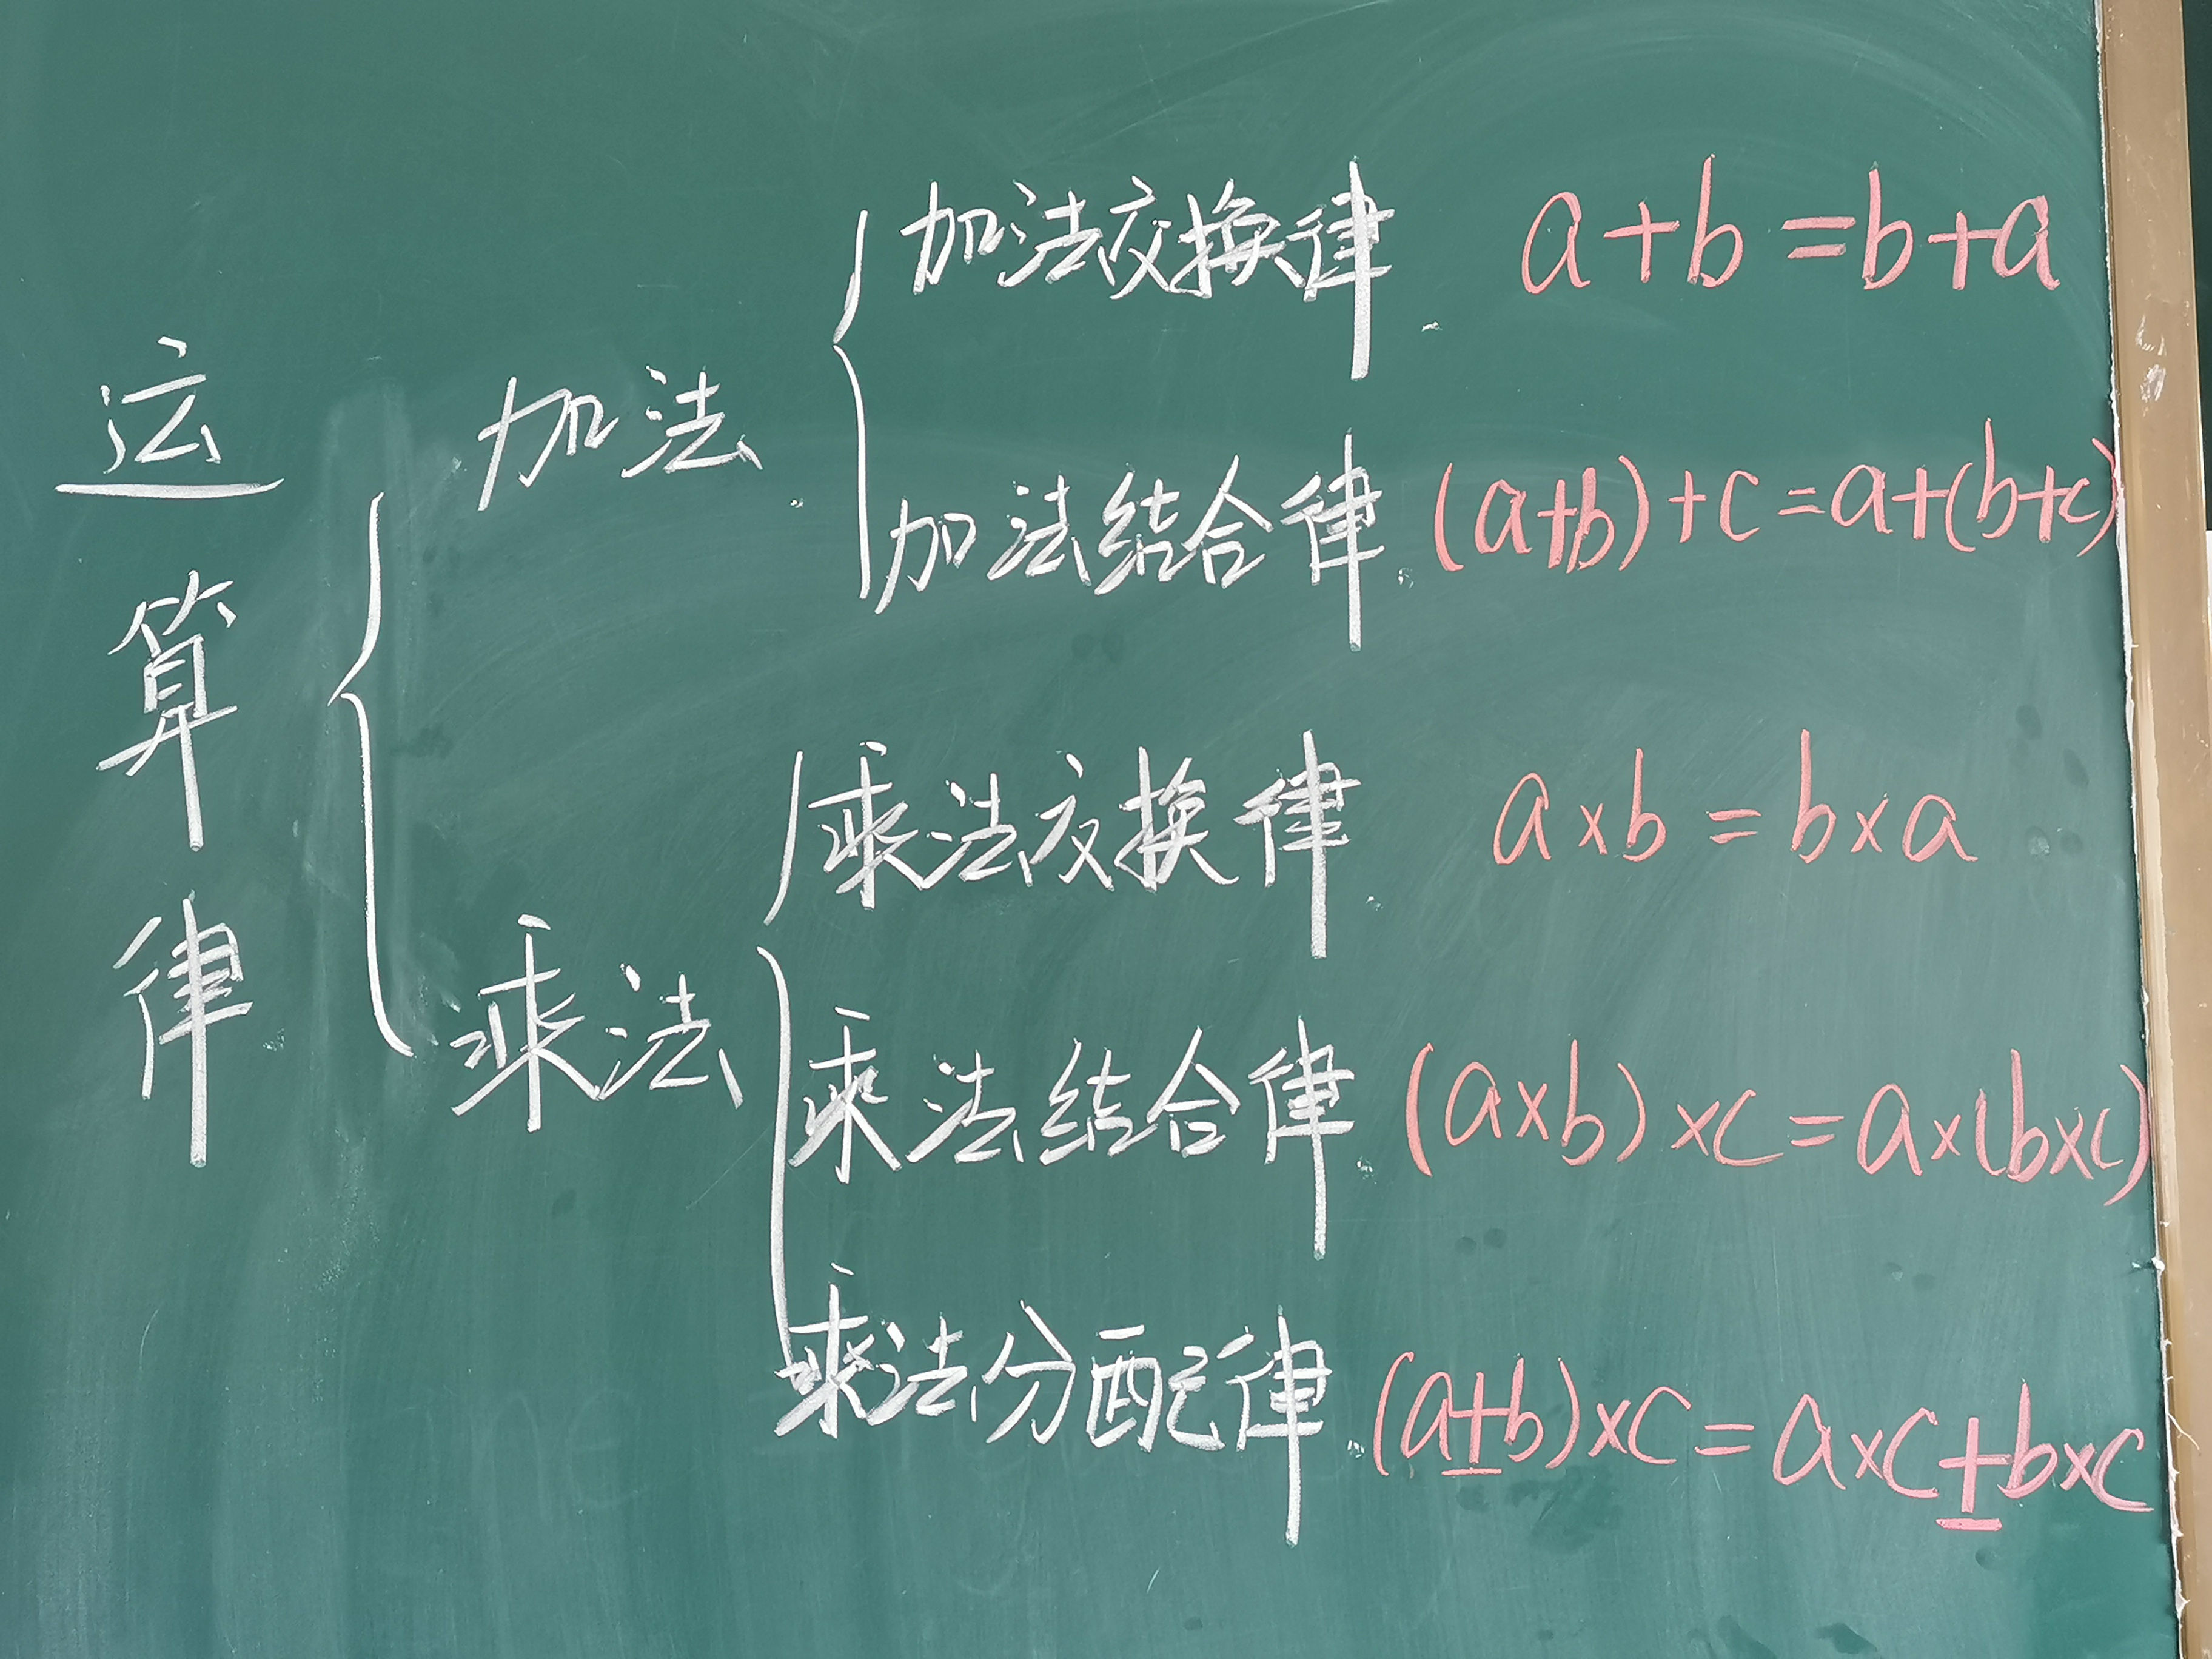 运算律
加法
加法交换律 a+b=b+a
加法结合律 (a+b)+c=a+(b+c)
乘法
乘法交换律 a×b=b×a
乘法结合律 (a×b)×c=a×(b×c)
乘法分配律 (a±b)×c=a×c±b×c